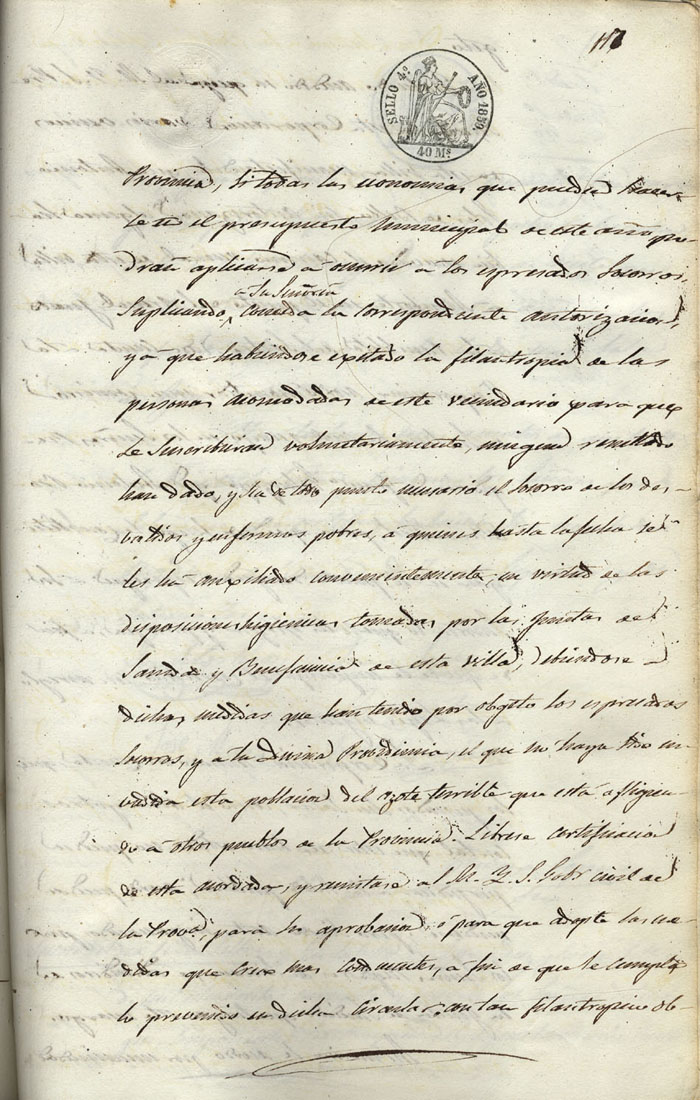 117
SELLO 4º AÑO 1859.
40 Ms
Provincia, si todas las economias que puedan hacer-
se en el presupuesto municipal de este año po-
dran aplicarse á ocurrir á los espresados Socorros,
á Su Señoria
Suplicando conceda la correspondiente autorizacion,
ya que habiendose exitado la filantropia de las
personas acomodadas de este vecindario para que
se suscribieran voluntariamente, ningun resultado
han dado, y es de todo punto necesario el Socorro de los des-
validos y enfermos pobres, á quienes hasta la fecha se
les há auxiliado convenientemente, en virtud de las
disposiciones higienicas tomadas por las Juntas de
Sanidad y Beneficencia de esta villa, debiendose
dichas medidas que han tenido por objeto los espresados
Socorros, y á la Divina Providencia, el que no haya sido in-
vadida esta poblacion del azote terrible que está afligien-
do á otros pueblos de la Provincia. Librese certificacion
de esta acordada, y remitase al M. Y. S. Gobr civil de
la Prova, para su aprobacion, ó para que adopte las me-
didas que crea mas conducentes, á fin de que se cumpla
lo prevenido en dicha Circular con tan filantropico ob-